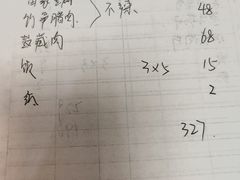 竹笋腊肉 不辣 48
盐菜肉 68
饭 3×5 15
纸 2
327